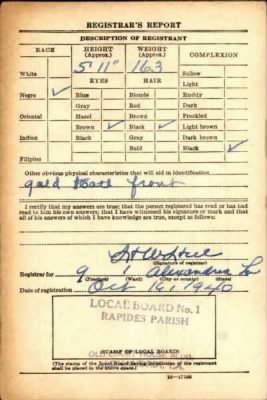 REGISTRAR'S REPORT
DESCRIPTION OF REGISTRANT
RACE HEIGHT (Approx.) WEIGHT (Approx.) COMPLEXION
White 5' 11" 163 Sallow
EYES HAIR Light
Negro ✓ Blue Blonde Ruddy
Gray Red Dark
Oriental Hazel Brown Freckled
Brown ✓ Black ✓ Light brown
Indian Black Gray Dark brown
Bald Black ✓
Filipino
Other obvious physical characteristics that will aid in identification
gold tooth front
I certify that my answers are true; that the person registered has read or has had read to him his own answers; that I have witnessed his signature or mark and that all of his answers of which I have knowledge are true, except as follows:
(Signature of registrar)
Registrar for 9 1 Alexandria La
(Precinct) (Ward) (City or county) (State)
Date of registration Oct 16, 1940
LOCAL BOARD No. 1
RAPIDES PARISH
(STAMP OF LOCAL BOARD)
(The stamp of the Local Board having jurisdiction of the registrant shall be placed in the above space.)